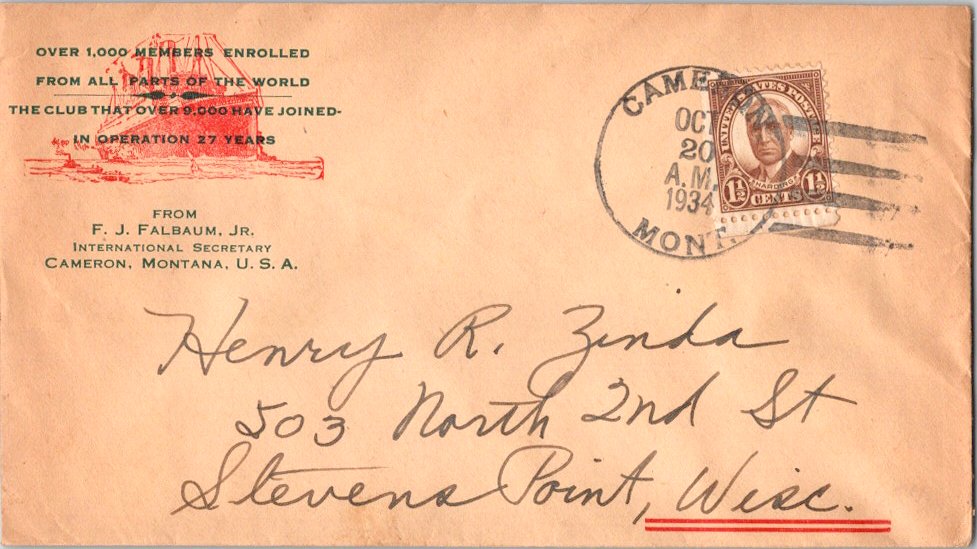 OVER 1,000 MEMBERS ENROLLED
FROM ALL PARTS OF THE WORLD
THE CLUB THAT OVER 9,000 HAVE JOINED-
IN OPERATION 27 YEARS
FROM
F. J. FALBAUM, JR.
INTERNATIONAL SECRETARY
CAMERON, MONTANA, U. S. A.
CAMERON
OCT
20
A.M.
1934
MONT.
UNITED STATES POSTAGE
HARDING
1½ CENTS 1½
Henry R. Zinda
503 North 2nd St
Stevens Point, Wisc.